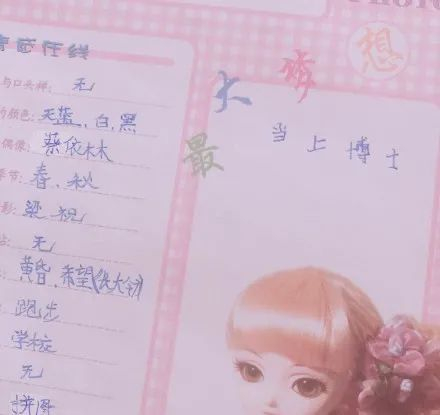 青春在线
与口头禅：无
的颜色：天蓝，白，黑
偶像：蔡依林
季节：春，秋
影：梁祝
无
黄昏，希望(张大含)
跑步
学校
无
拼图
最大梦想
当上博士